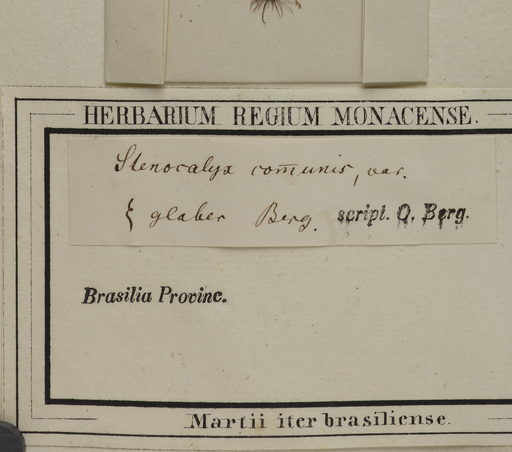 HERBARIUM REGIUM MONACENSE.
Stenocalyx com̅unis, var.
ξ glaber Berg. script. O. Berg.
Brasilia Provinc.
Martii iter brasiliense.